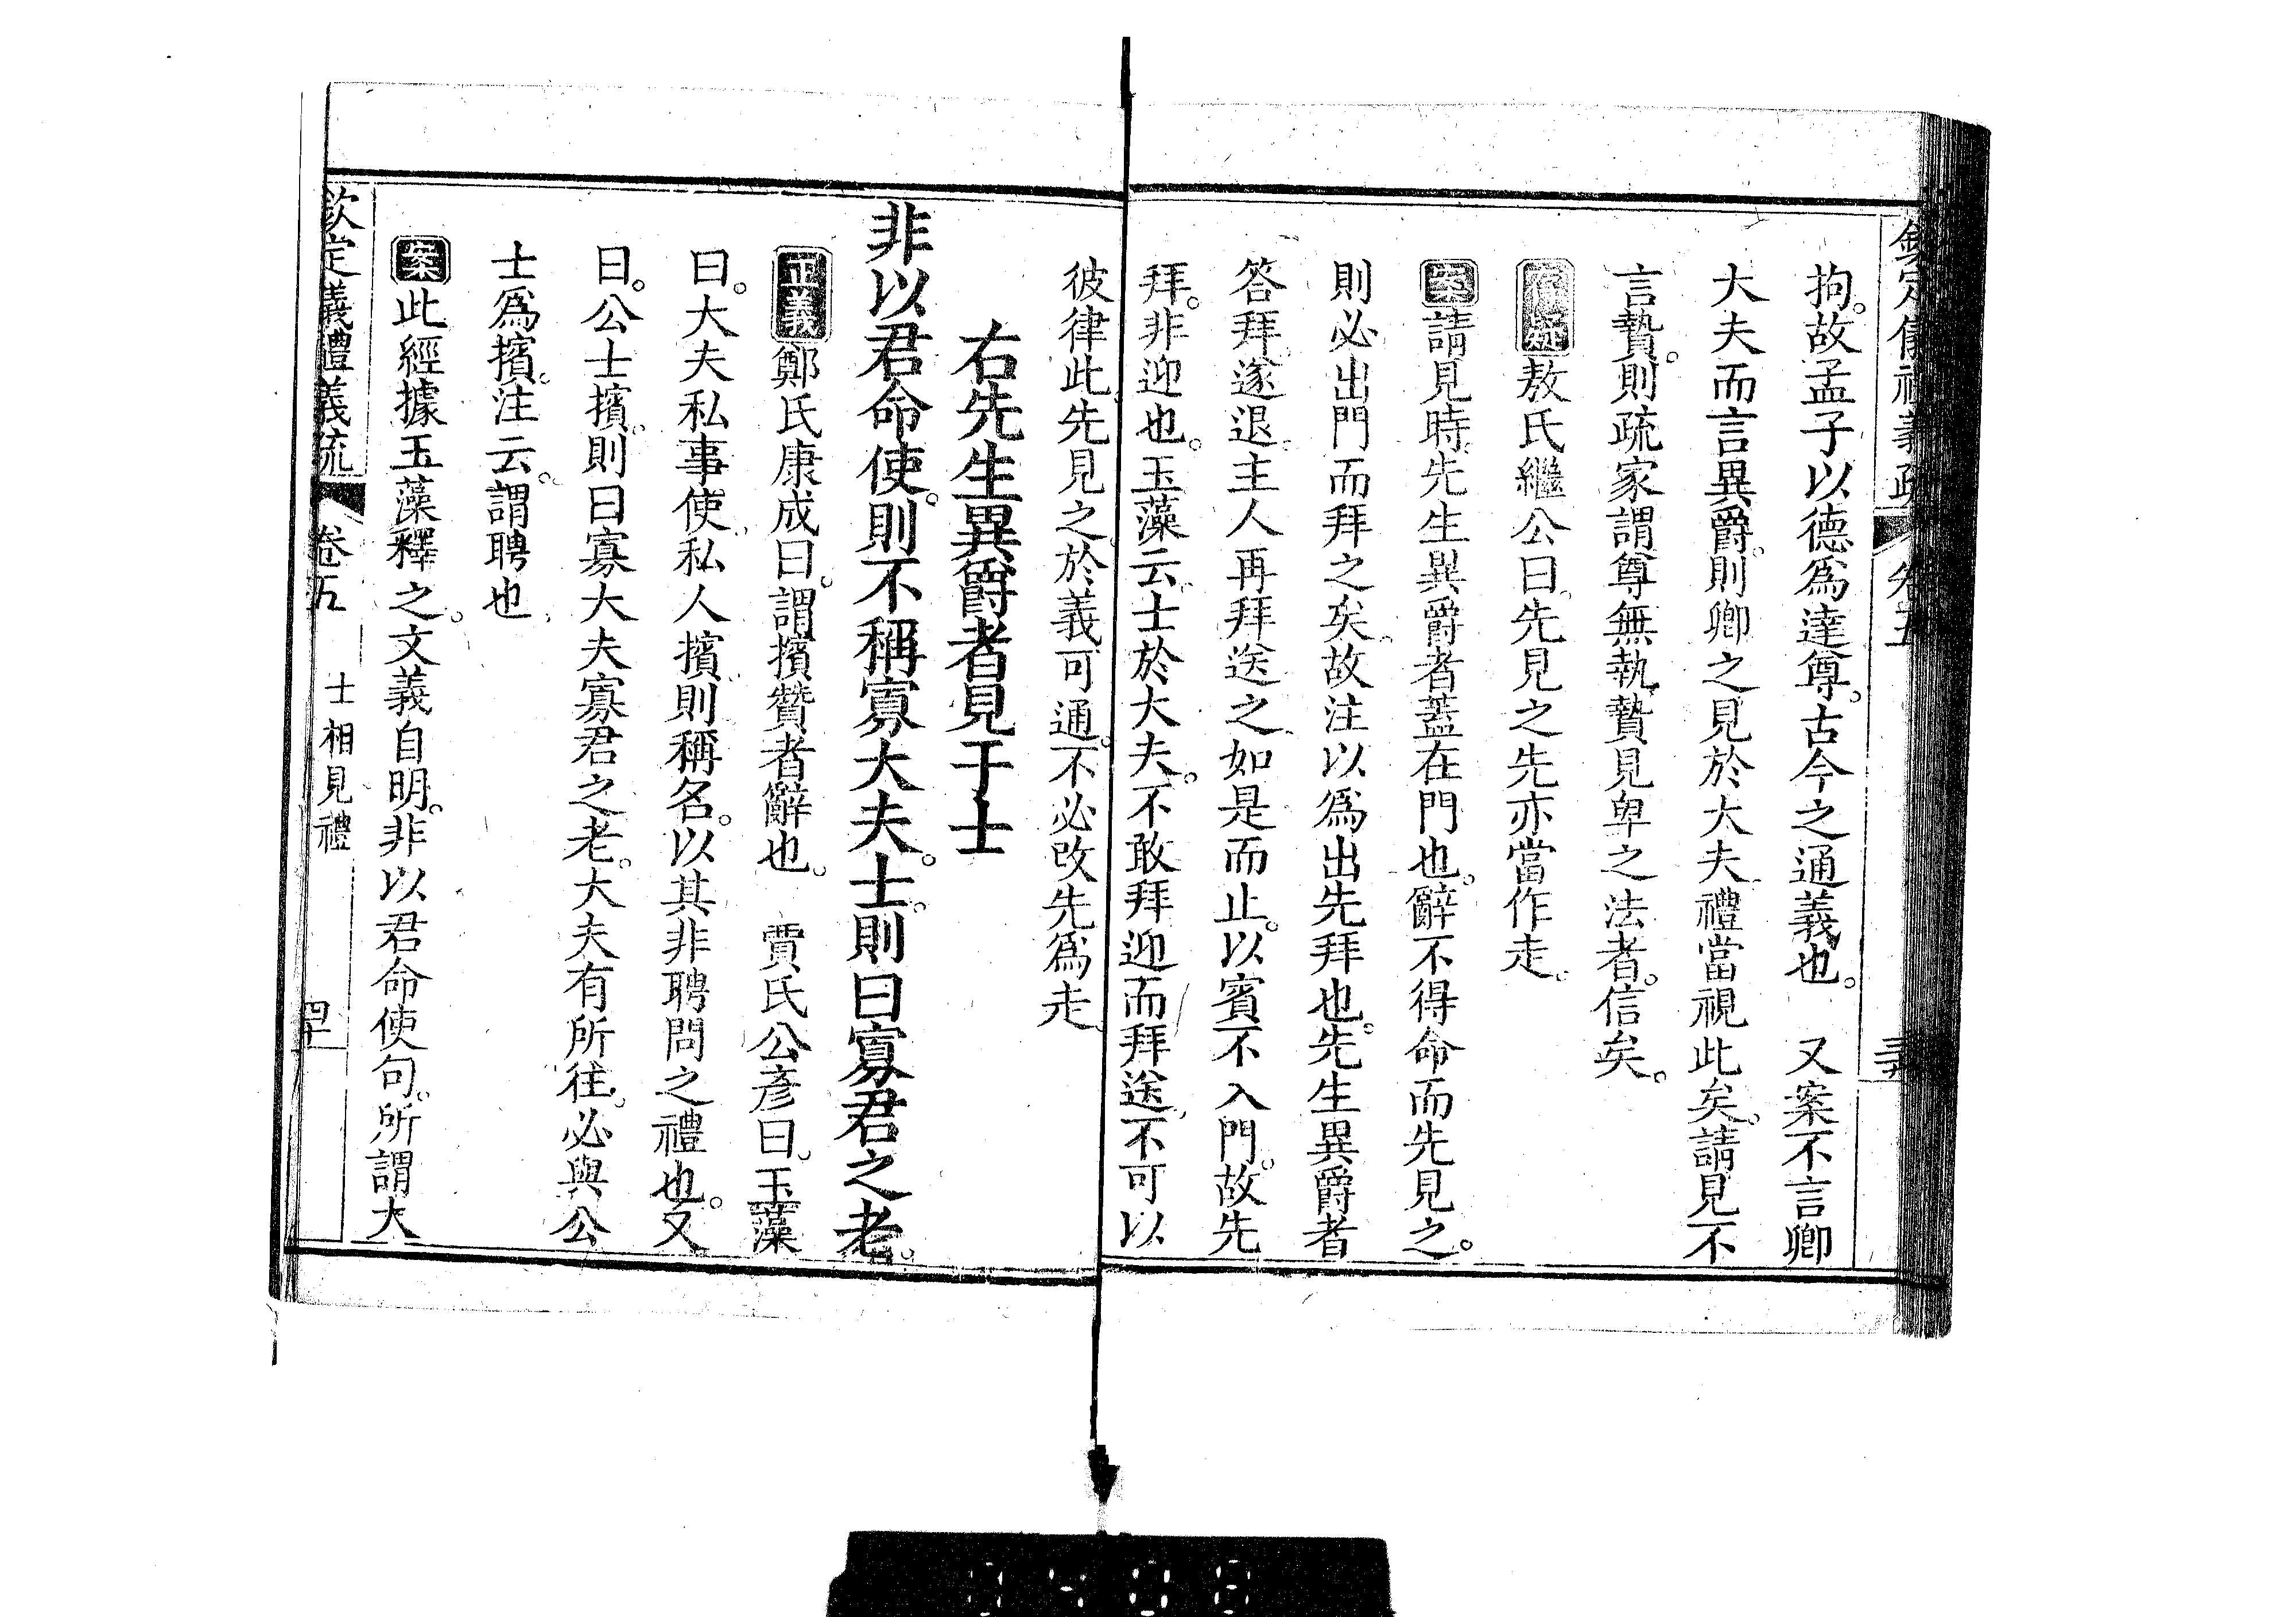 欽定儀禮義疏 卷五
拘。故孟子以德爲達尊。古今之通義也。 又案不言卿
大夫而言異爵。則卿之見於大夫。禮當視此矣。請見不
言贄。則疏家謂尊無執贄見卑之法者。信矣。
存疑敖氏繼公曰。先見之先亦當作走。
案請見時。先生異爵者蓋在門也。辭不得命而先見之。
則必出門而拜之矣。故注以爲出先拜也。先生異爵者
答拜遂退。主人再拜送之。如是而止。以賓不入門。故先
拜。非迎也。玉藻云。士於大夫。不敢拜迎而拜送。不可以
彼律此。先見之。於義可通。不必改先爲走。
右先生異爵者見于士
非以君命使。則不稱寡大夫。士。則曰寡君之老。
正義鄭氏康成曰。謂擯贊者辭也。 賈氏公彥曰。玉藻
曰。大夫私事使。私人擯。則稱名。以其非聘問之禮也。又
曰。公士擯。則曰寡大夫寡君之老。大夫有所往。必與公
士爲擯。注云。謂聘也。
案此經據玉藻釋之。文義自明。非以君命使句。所謂大
欽定儀禮義疏 卷五 士相見禮